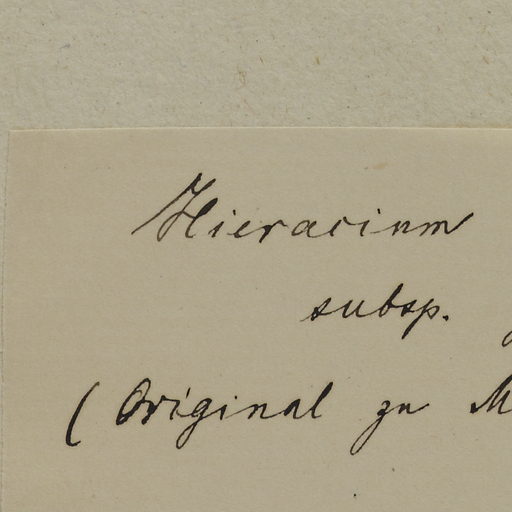 Hieracium
subsp.
(Original zu M